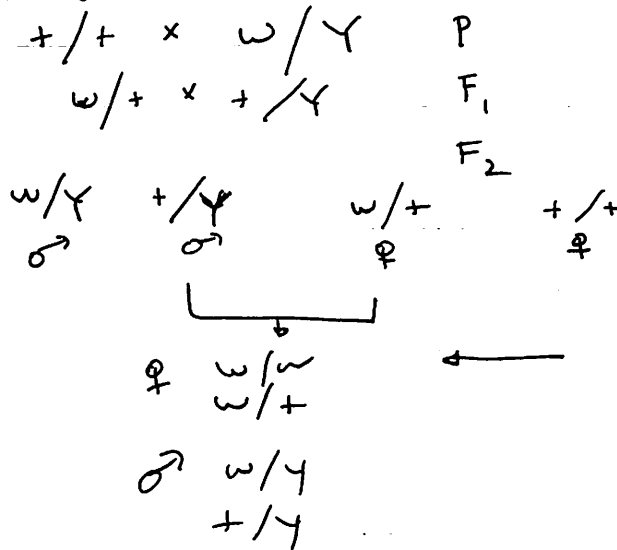 +/+ x w/Y P
w/+ x +/Y F₁
F₂
w/Y +/Y w/+ +/+
♂ ♂ ♀ ♀
♀ w/w
w/+
♂ w/Y
+/Y